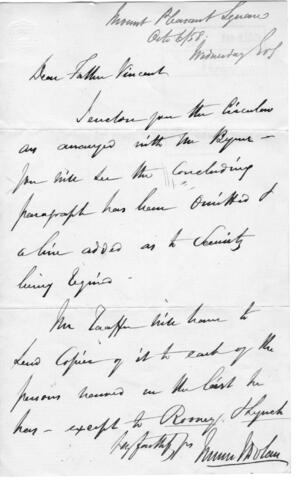 Mount Pleasant Square
Octr 6/58
Wednesday
Dear Father Vincent
I enclose you the Circular
as arranged with Mr Byrne –
you will see the "Concluding"
paragraph has been omitted &
a line added as to Security
being required –
Mr Taaffe will have to
send Copies of it to each of the
persons named in the List he
has – except to Rooney & Lynch